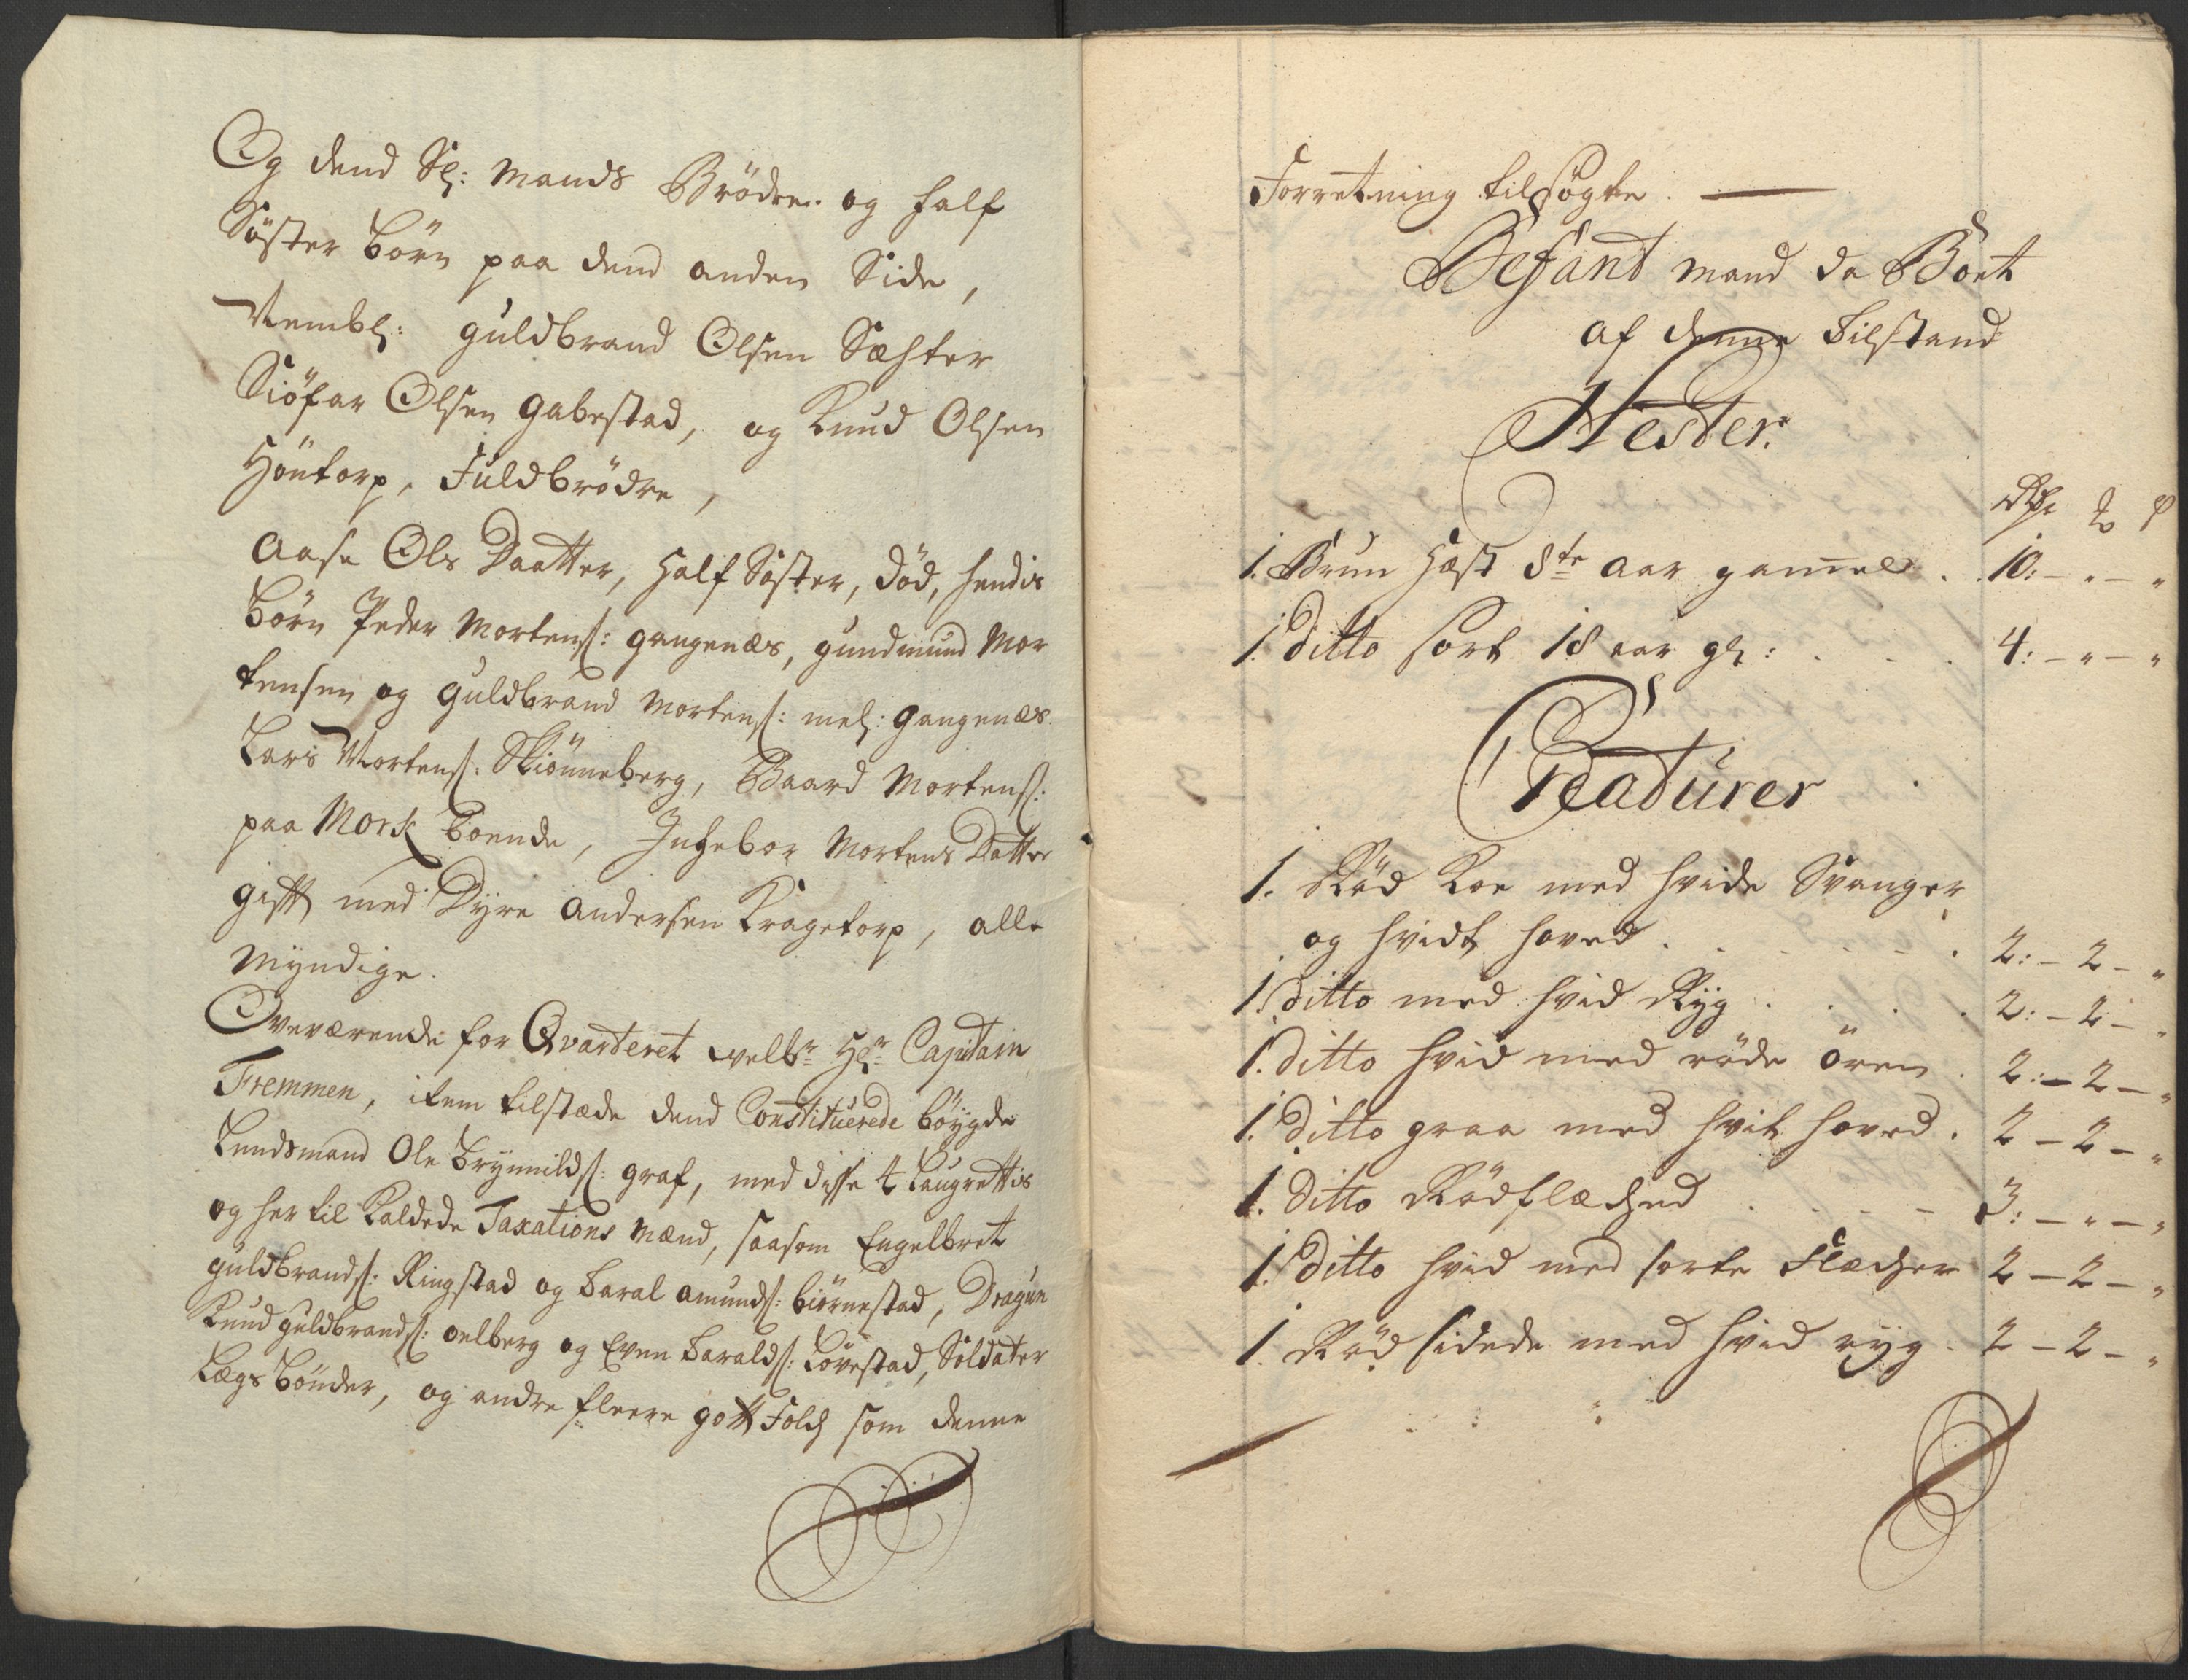 Og dend Sl: Mands Brödre og half
Söster börn paa dend anden Side,
Nembl: guldbrand Olsen Sæhter
Siöfar Olsen gabestad, og Knud Olsen
Höntorp, Fuldbrödre,
Aase Ols Daatter, Half Söster, död, hendis
börn Peder Mortens: gangenæs, gundmund Mor
tensen og guldbrand Mortens: mel: gangenæs
Lars Mortens: Skiönneberg, Baard Mortens:
paa Mork boende, Ingebor Mortens Datter
gift med Dyre Andersen Kragetorp, alle
Myndige.
Overværende for Qvarteret welbr: Hr: Capitain
Fremmen, item tilstæde dend Constituerede böygde
Lendsmand Ole Brynnilds: graf, med disse 4 Laugrettis
og her til Kaldede Taxations Mænd, saasom Engelbret
guldbrands: Ringstad og Taral Amunds: biörnestad, Dragun
Knud guldbrands: oelberg og Even Taralds: Lövestad, Soldater
Lægs Bönder, og andre fleere gott Folch som denne
Forretning tilsögte.
Befant mand da Boet
af denne Tilstand
Hester.
Rdr
1. Brun Hæst 8te aar gammel . . 10: - " - "
1. ditto sort 18 aar gl: . . . 4: - " - "
Creaturer
1. Röd Koe med hvide Svanger
og hvidt hoved . . . 2: - 2 - "
1. ditto med hvid Ryg . . . 2: - 2 - "
1. ditto hvid med röde ören . 2: - 2 - "
1. ditto graa med hvit hoved . 2 - 2 - "
1. ditto Rödflæched . . . 3: - " - "
1. ditto hvid med sorte Flæcher 2 - 2 - "
1. Röd sidede med hvid ryg . 2 - 2 - "